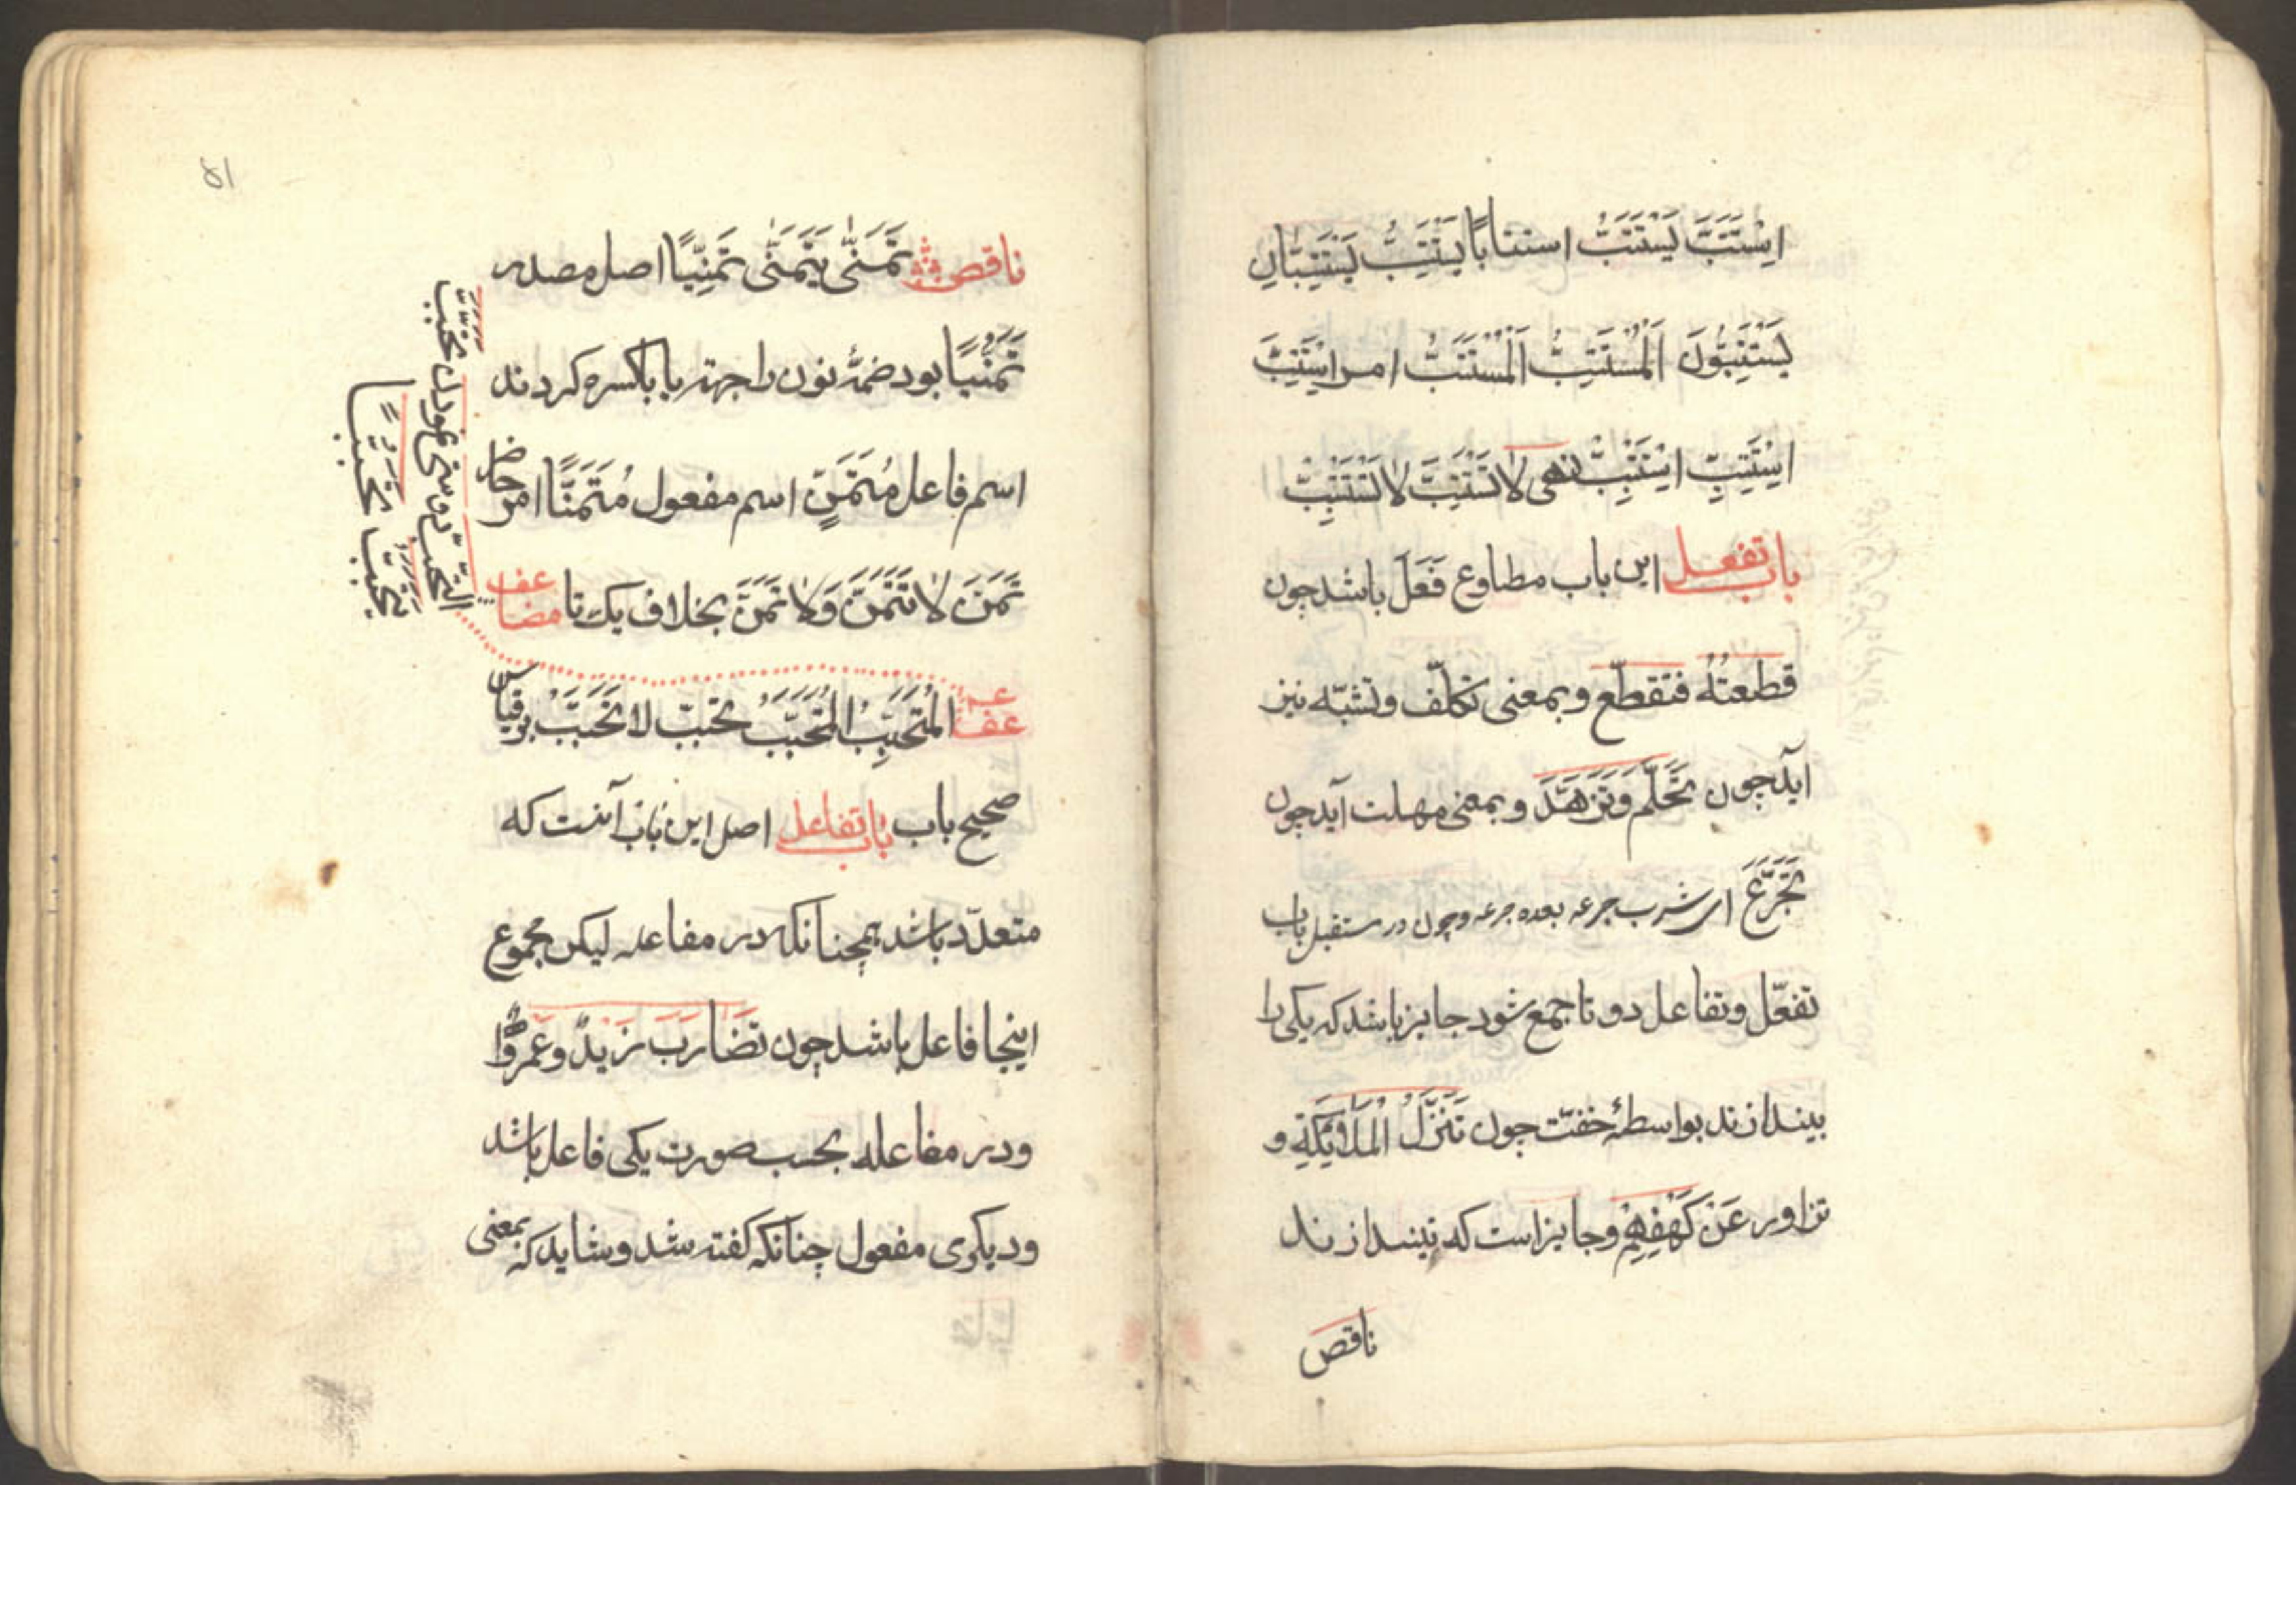 اِسْتَتَبَّ یَسْتَتِبُّ استتابًا یَسْتَتِبُّ یَسْتَتِبَّانِ
یَسْتَتِبُّونَ اَلْمُسْتَتِبُّ اَلْمُسْتَتَبُّ امر اِسْتَتِبَّ
اِسْتَتِبِّ اِسْتَتْبِبْ نهی لا تَسْتَتِبَّ لا تَسْتَتْبِبْ
باب تفعل این باب مطاوع فَعَّلَ باشد چون
قطعتُهُ فتقطّع و بمعنی تکلّف و تشبّه نیز
آید چون تَحَلَّم وَتَزَهَّدَ و بمعنی مهلت آید چون
تَجَرَّعَ ای شرب جرعه بعده جرعه و چون در مستقبل باب
تفعّل و تفاعل دو تا جمع شود جایز باشد که یکی را
بیندازند بواسطهٔ خفّت چون تَنَزَّلُ الْمَلَائِكَةِ و
تزاور عَن كَهْفِهِمْ و جایز است که نیندازند
ناقص
۵۱
ناقص تَمَنّٰی یَتَمَنّٰی تَمَنِّیًا اصل مصدر
تَمَنُّیًا بود ضمّهٔ نون را جهة یا با کسره کردند
اسم فاعل مُتَمَنٍّ اسم مفعول مُتَمَنًّا امر حاضر
تَمَنَّ لا تَتَمَنَّ وَلا تَمَنَّ بخلاف یک تا مضاعف
التحبّب دوستی نمودن تحبّب
یتحبّب تَحَبُّبًا
المُتَحَبِّبُ المُتَحَبَّبُ تحبّب لا تَحَبَّبْ بر قیاس
صحیح باب باب تفاعل اصل این باب آنست که
متعدّد باشد همچنانکه در مفاعله لیکن مجموع
اینجا فاعل باشد چون تَضَارَبَ زَیدٌ وعَمرٌو
و در مفاعله بحسب صورت یکی فاعل باشد
و دیکری مفعول چنانکه کفته شد و شاید که بمعنی